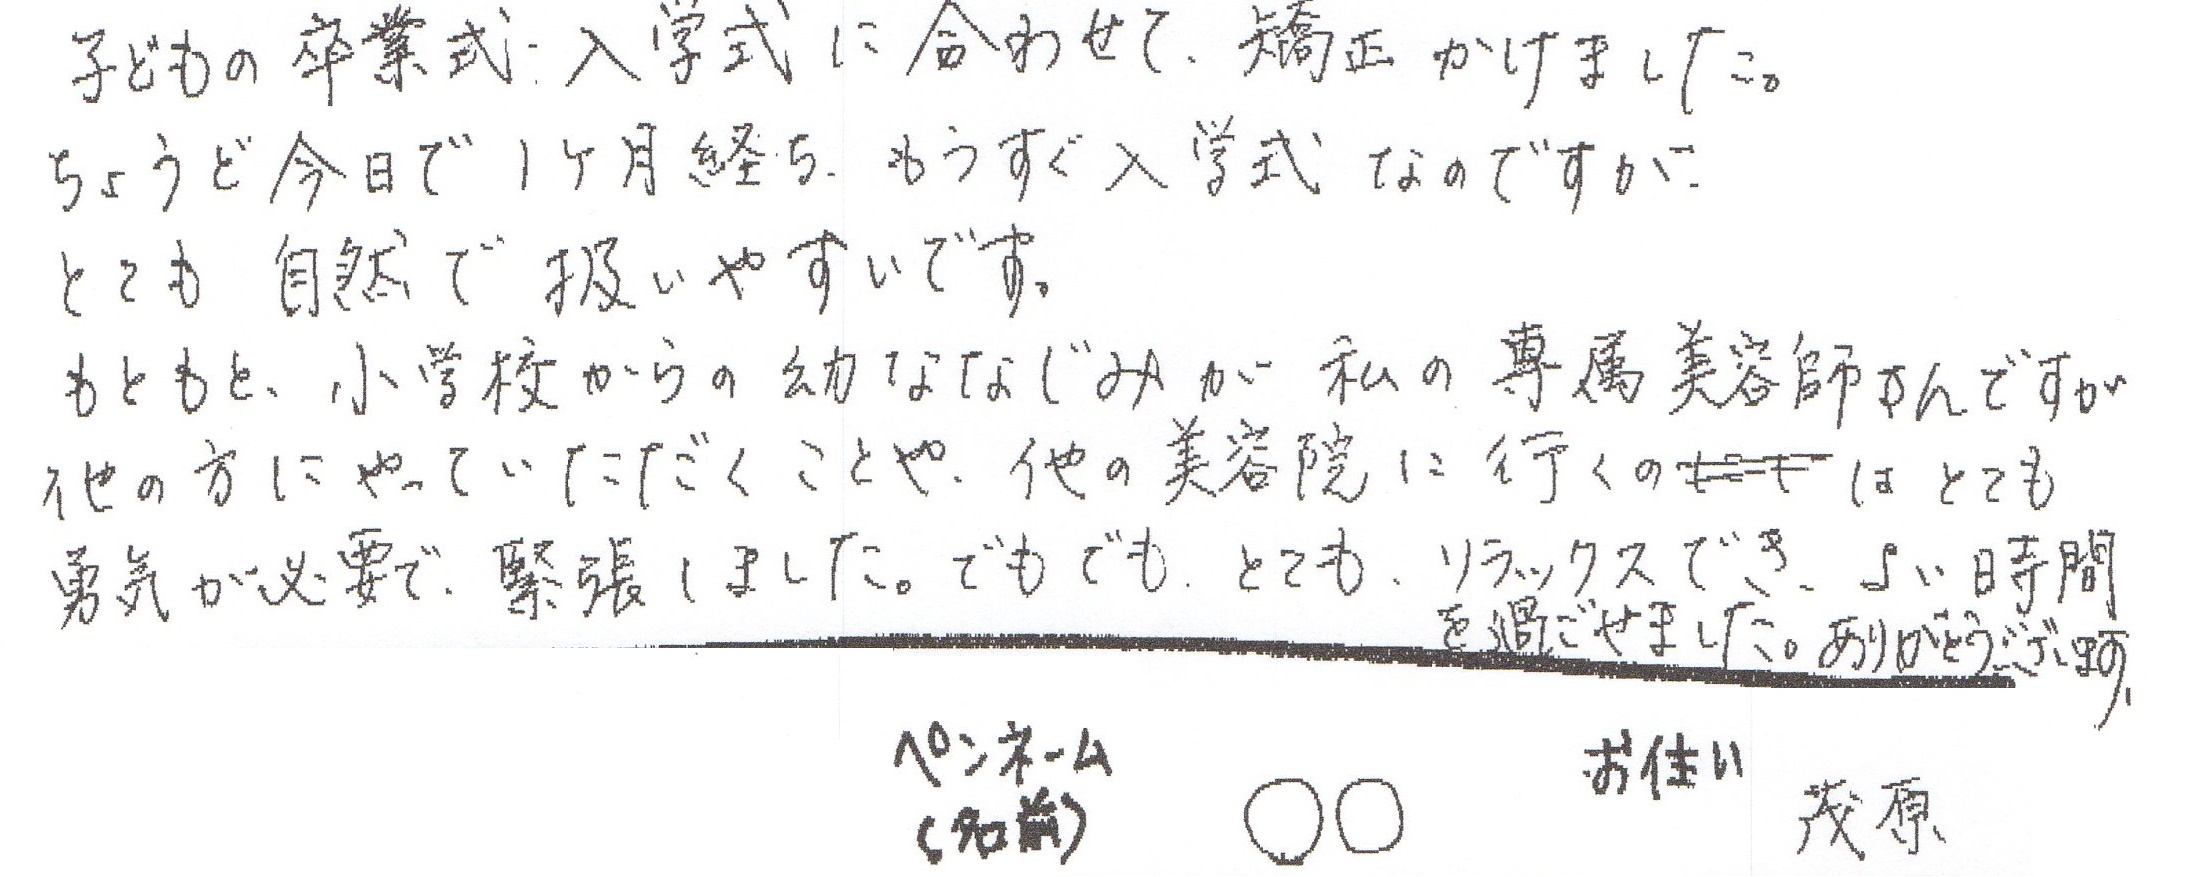 子どもの卒業式、入学式に合わせて、矯正かけました。
ちょうど今日で1ヶ月経ち、もうすぐ入学式なのですが、
とても自然で扱いやすいです。
もともと、小学校からの幼ななじみが私の専属美容師さんですが
他の方にやっていただくことや、他の美容院に行くのはとても
勇気が必要で、緊張しました。でもでも、とても、リラックスでき、よい時間
を過ごせました。ありがとうございます。
ペンネーム
(名前)
○○
お住い
茂原